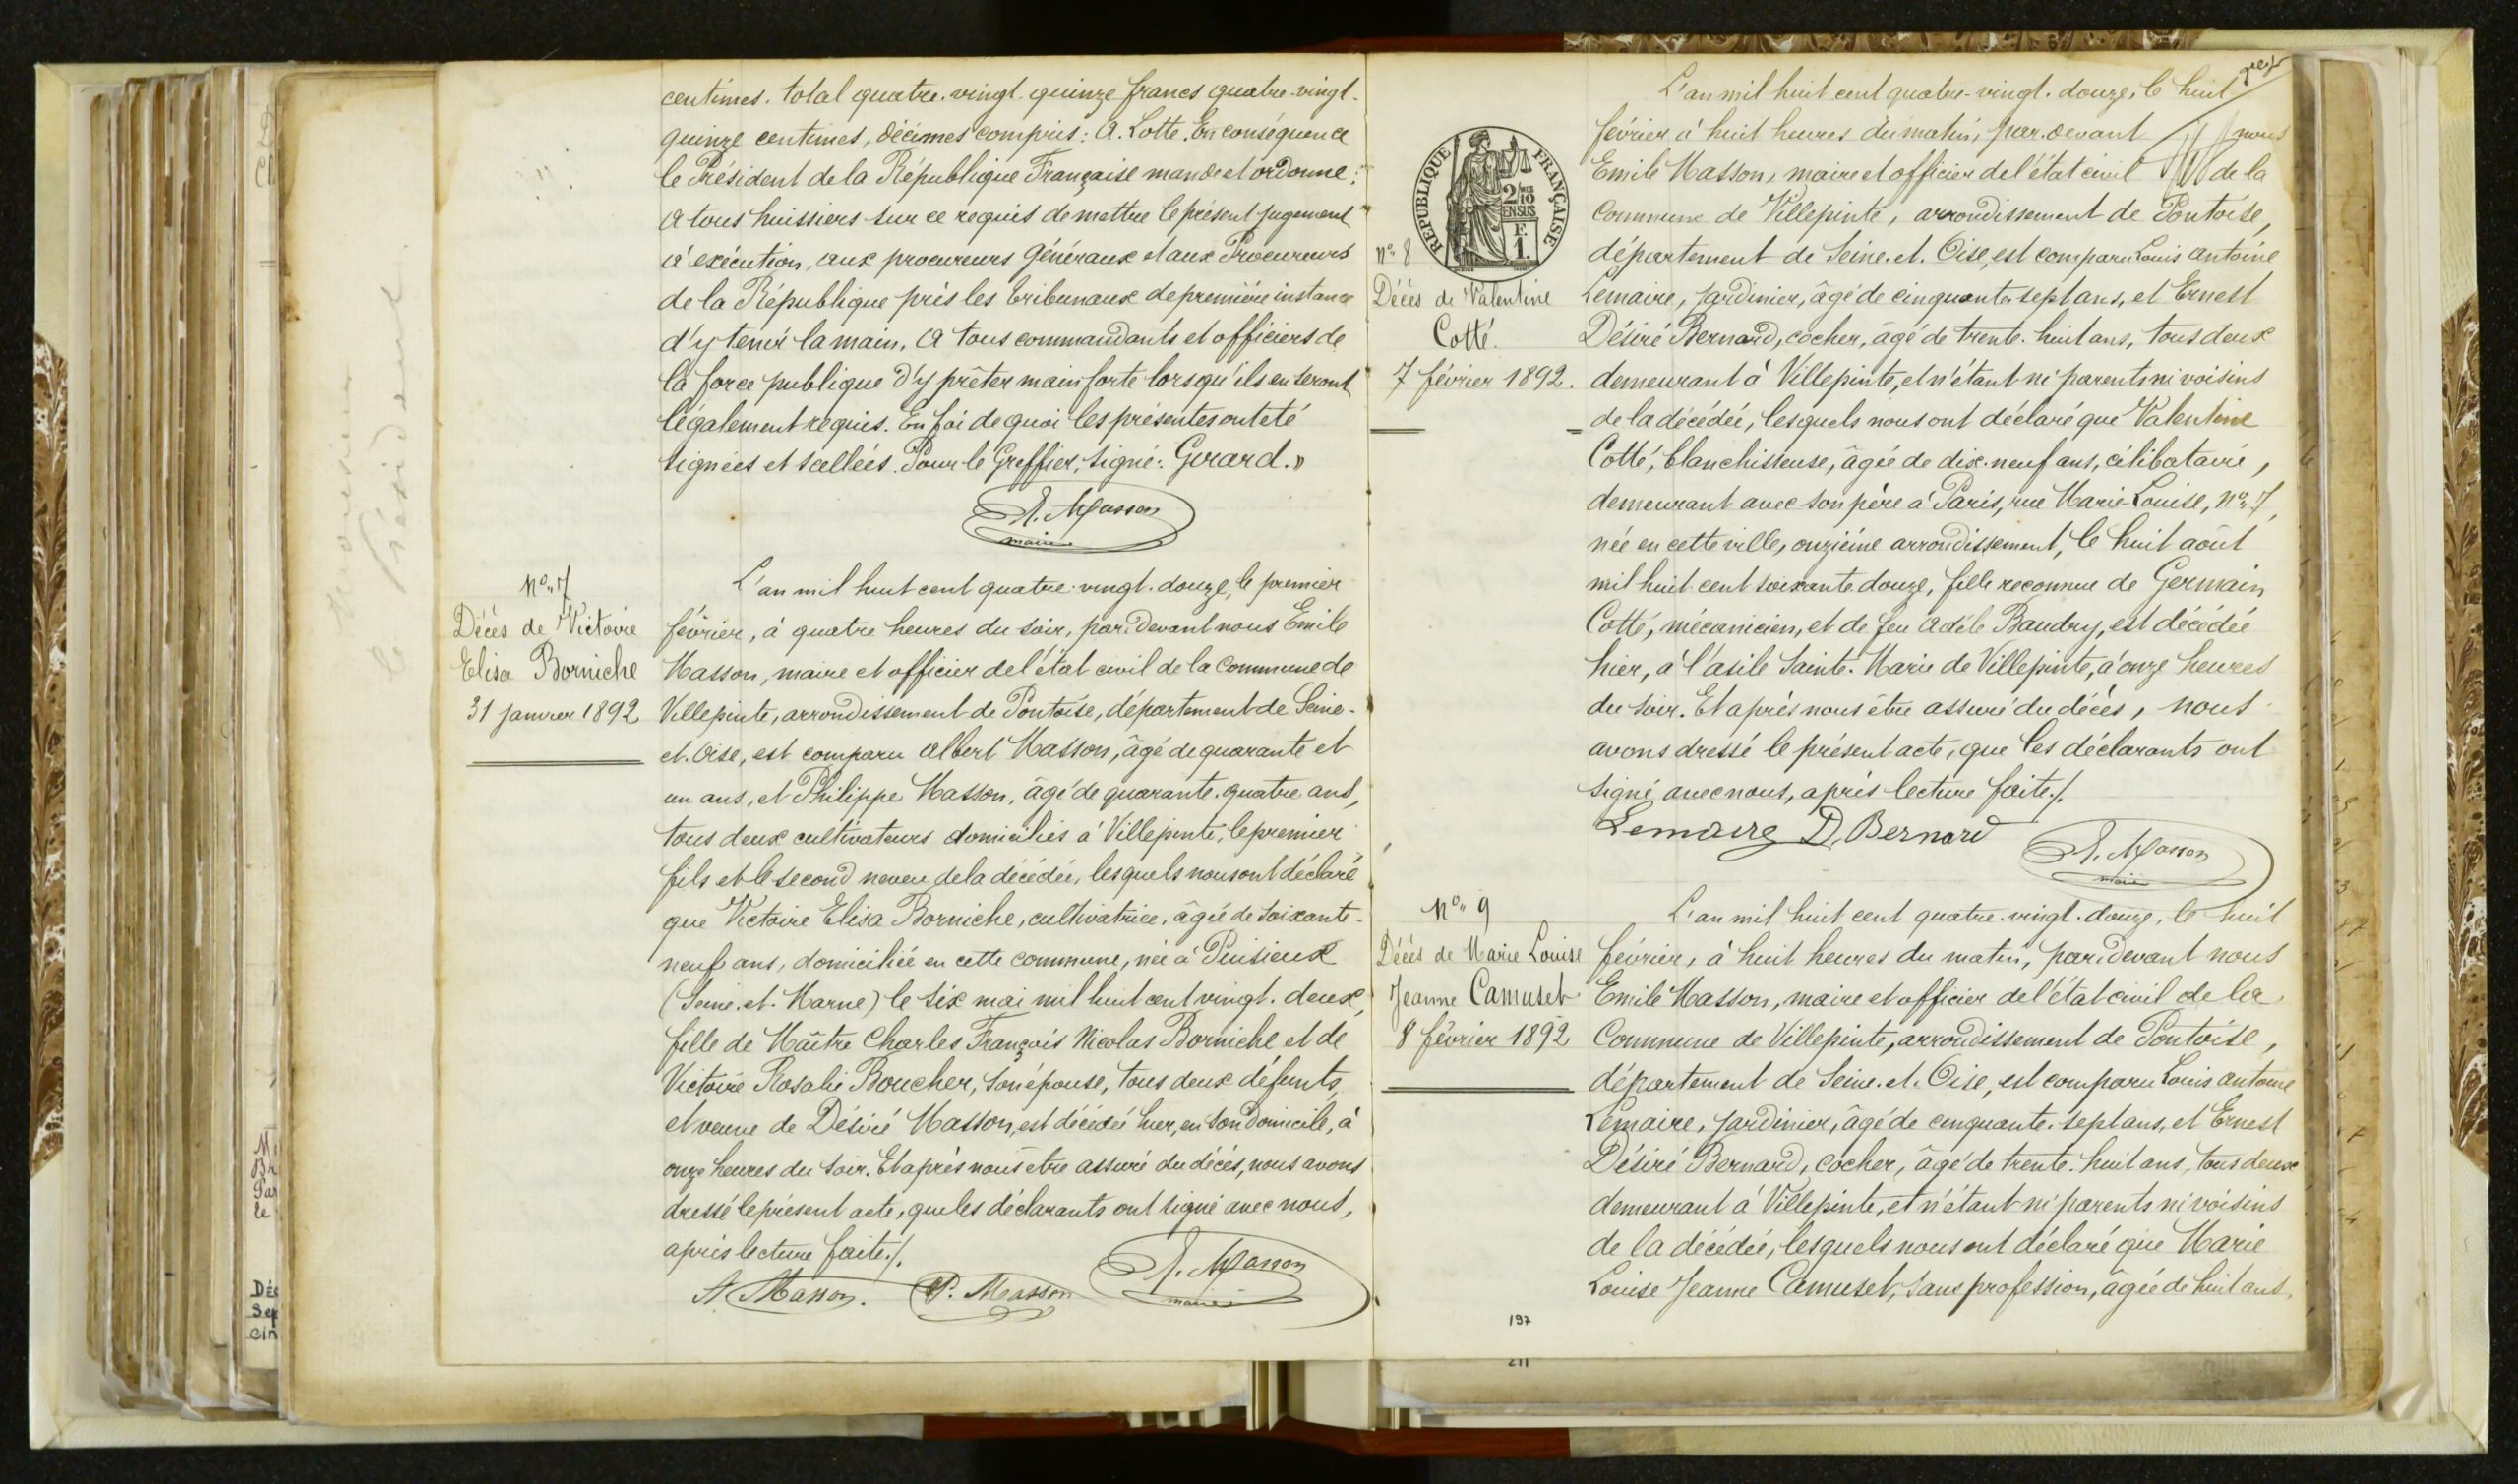 centimes. total quatre-vingt quinze francs quatre-vingt-
quinze centimes, décimes compris: A. Lotte. En conséquence
le Président de la République Française mande et ordonne:
A tous huissiers sur ce requis de mettre le présent jugement
à exécution, aux procureurs généraux et aux Procureurs
de la République près les tribunaux de première instance
d'y tenir la main. A tous commandants et officiers de
la force publique d'y prêter main forte lorsqu'ils en seront
légalement requis. En foi de quoi les présentes ont été
signées et scellées. Pour le Greffier, signé: Gerard.»
E. Masson
maire
No. 7
Décès de Victoire
Elisa Borniche
31 janvier 1892
L'an mil huit cent quatre-vingt-douze, le premier
février, à quatre heures du soir, par-devant nous Emile
Masson, maire et officier de l'état civil de la commune de
Villepinte, arrondissement de Pontoise, département de Seine-
et-Oise, est comparu Albert Masson, âgé de quarante et
un ans, et Philippe Masson, âgé de quarante-quatre ans,
tous deux cultivateurs domiciliés à Villepinte, le premier
fils et le second neveu de la décédée, lesquels nous ont déclaré
que Victoire Elisa Borniche, cultivatrice, âgée de soixante-
neuf ans, domiciliée en cette commune, née à Puisieux
(Seine-et-Marne) le six mai mil huit cent vingt-deux,
fille de Maître Charles François Nicolas Borniche et de
Victoire Rosalie Boucher, son épouse, tous deux défunts,
et veuve de Désiré Masson, est décédée hier, en son domicile, à
onze heures du soir. Et après nous être assuré du décès, nous avons
dressé le présent acte, que les déclarants ont signé avec nous,
après lecture faite./.
A. Masson. P. Masson E. Masson
maire
REPUBLIQUE FRANÇAISE
2/10
EN SUS
F.
1.
No. 8
Décès de Valentine
Cotté.
7 février 1892.
L'an mil huit cent quatre-vingt-douze, le huit
février à huit heures du matin, par-devant nous
Emile Masson, maire et officier de l'état civil de la
Commune de Villepinte, arrondissement de Pontoise,
département de Seine-et-Oise, est comparu Louis Antoine
Lemaire, jardinier, âgé de cinquante-sept ans, et Ernest
Désiré Bernard, cocher, âgé de trente-huit ans, tous deux
demeurant à Villepinte, et n'étant ni parents ni voisins
de la décédée, lesquels nous ont déclaré que Valentine
Cotté, blanchisseuse, âgée de dix-neuf ans, célibataire,
demeurant avec son père à Paris, rue Marie-Louise, No. 7,
née en cette ville, onzième arrondissement, le huit août
mil huit cent soixante douze, fille reconnue de Germain
Cotté, mécanicien, et de feu Adèle Baudry, est décédée
hier, à l'asile Sainte-Marie de Villepinte, à onze heures
du soir. Et après nous être assuré du décès, nous
avons dressé le présent acte, que les déclarants ont
signé avec nous, après lecture faite./.
Lemaire D. Bernard
E. Masson
maire
No. 9
Décès de Marie Louise
Jeanne Camuset
8 février 1892
L'an mil huit cent quatre-vingt-douze, le huit
février, à huit heures du matin, par-devant nous
Emile Masson, maire et officier de l'état civil de la
Commune de Villepinte, arrondissement de Pontoise,
département de Seine-et-Oise, est comparu Louis Antoine
Lemaire, jardinier, âgé de cinquante-sept ans, et Ernest
Désiré Bernard, cocher, âgé de trente-huit ans, tous deux
demeurant à Villepinte, et n'étant ni parents ni voisins
de la décédée, lesquels nous ont déclaré que Marie
Louise Jeanne Camuset, sans profession, âgée de huit ans,
197
211